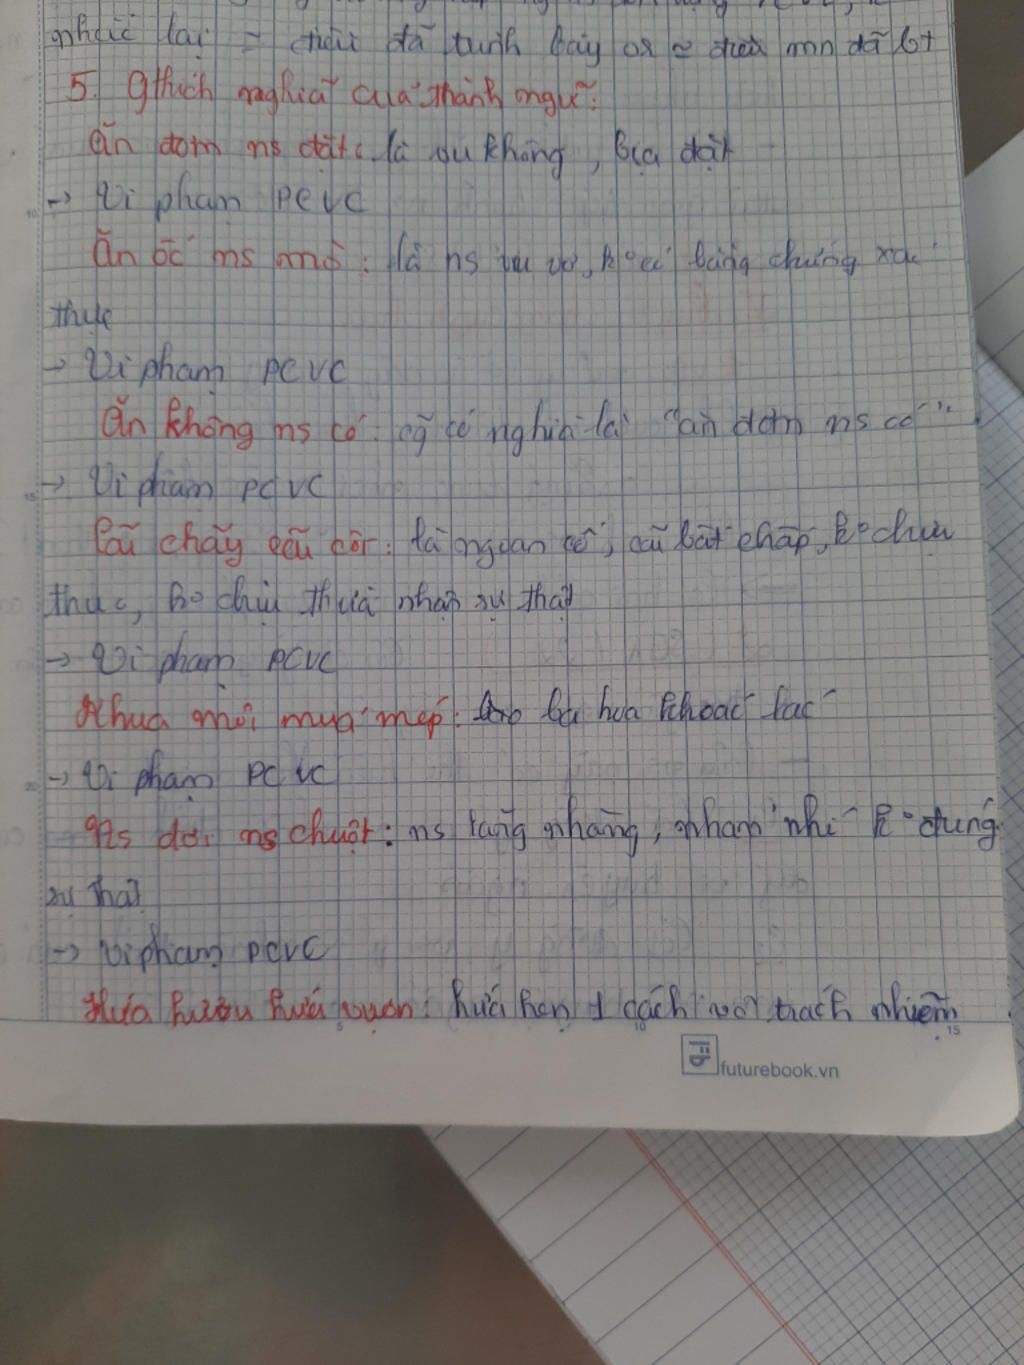 nhắc lại = điều đã trình bày or = điều mn đã bt
5. Gthích nghĩa của thành ngữ:
Ăn đơm ns đặt: là vu khống, bịa đặt
→ Vi phạm PCVC
Ăn ốc ns mò: là ns vu vơ, ko có bằng chứng xác
thực
→ Vi phạm PCVC
Ăn không ns có: cg̃ có nghĩa là "ăn đơm ns có"
→ Vi phạm PCVC
Cãi chày cãi cối: là ngoan cố, cãi bất chấp, ko chịu
thua, ko chịu thừa nhận sự thật
→ Vi phạm PCVC
Khua môi múa mép: ba hoa khoác lác
→ Vi phạm PCVC
Ns dơi ns chuột: ns lăng nhăng, nhảm nhí ko đúng
sự thật
→ Vi phạm PCVC
Hứa hươu hứa vượn: hứa hẹn 1 cách vô trách nhiệm
5 10 15
futurebook.vn